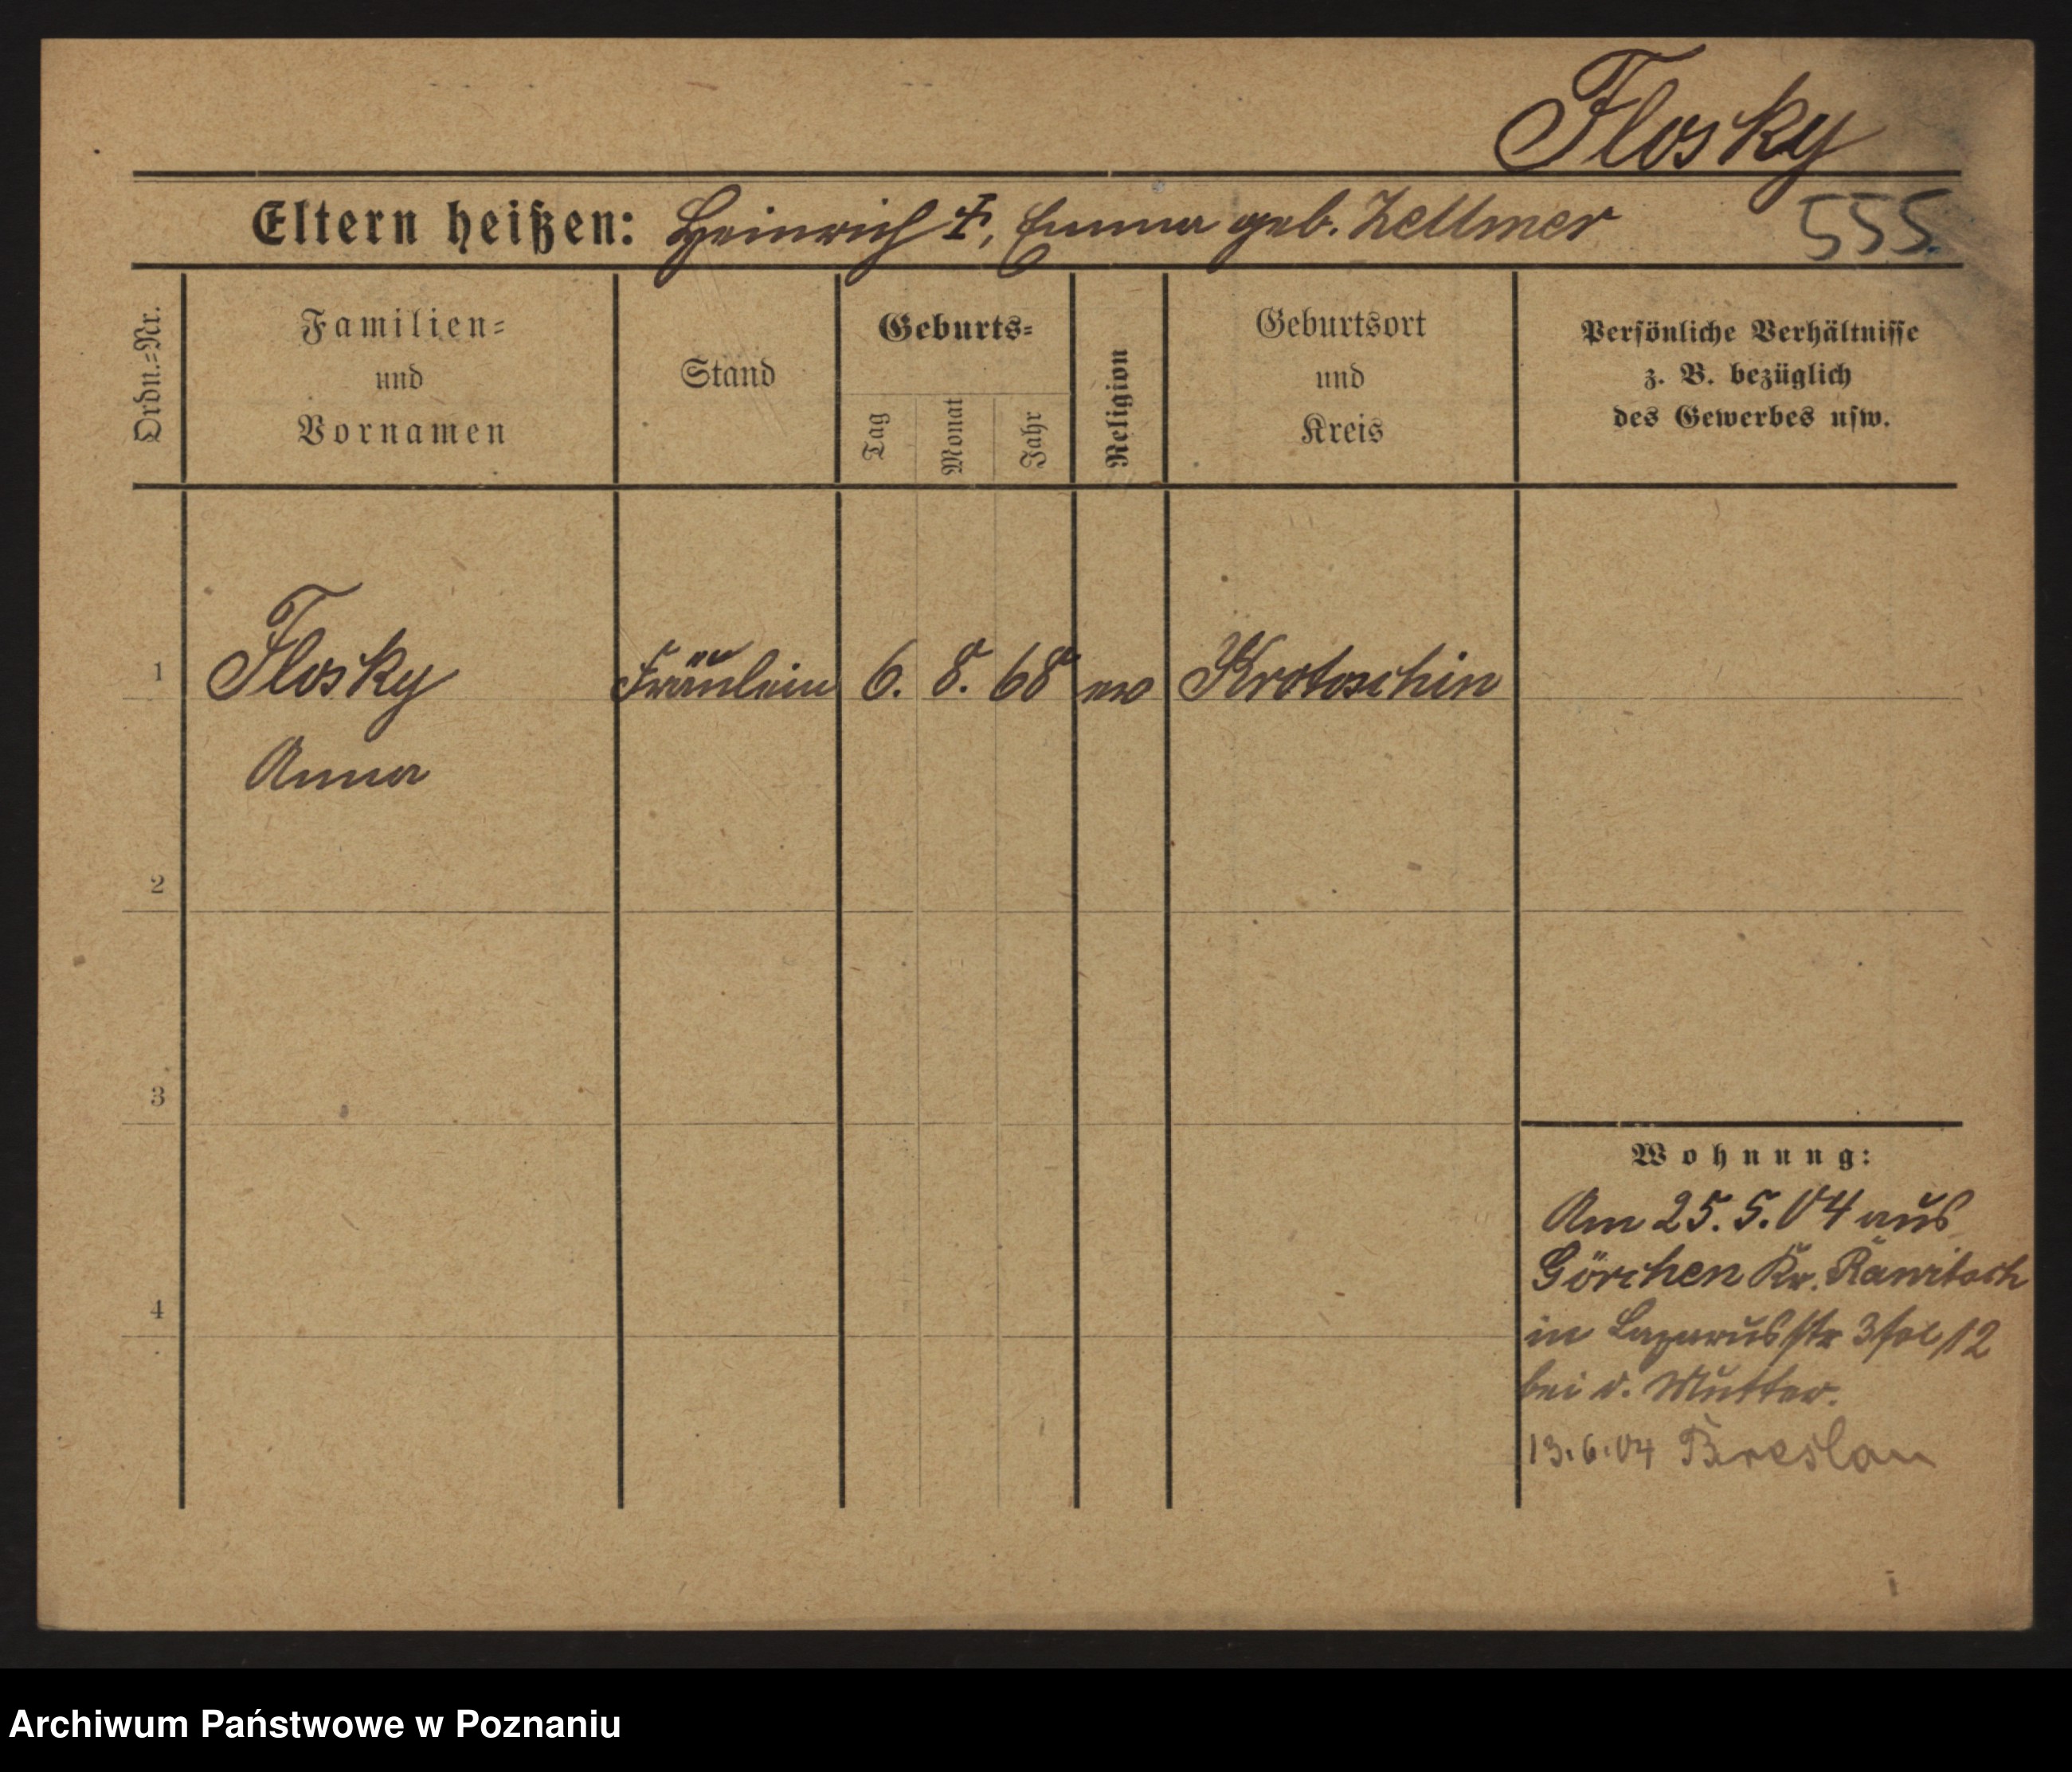 Flosky
Eltern heißen: Heinrich †, Emma geb. Zellmer 555.
Ordn.=Nr.
Familien=
und
Vornamen
Stand
Geburts=
Tag
Monat
Jahr
Religion
Geburtsort
und
Kreis
Persönliche Verhältnisse
z. B. bezüglich
des Gewerbes usw.
1 Flosky Fräulein 6. 8. 68 ev Krotoschin
Anna
2
3
4
Wohnung:
Am 25.5.04 aus
Görchen Kr. Rawitsch
in Lazarusstr 3 fol 12
bei d. Mutter.
13.6.04 Breslau
Archiwum Państwowe w Poznaniu